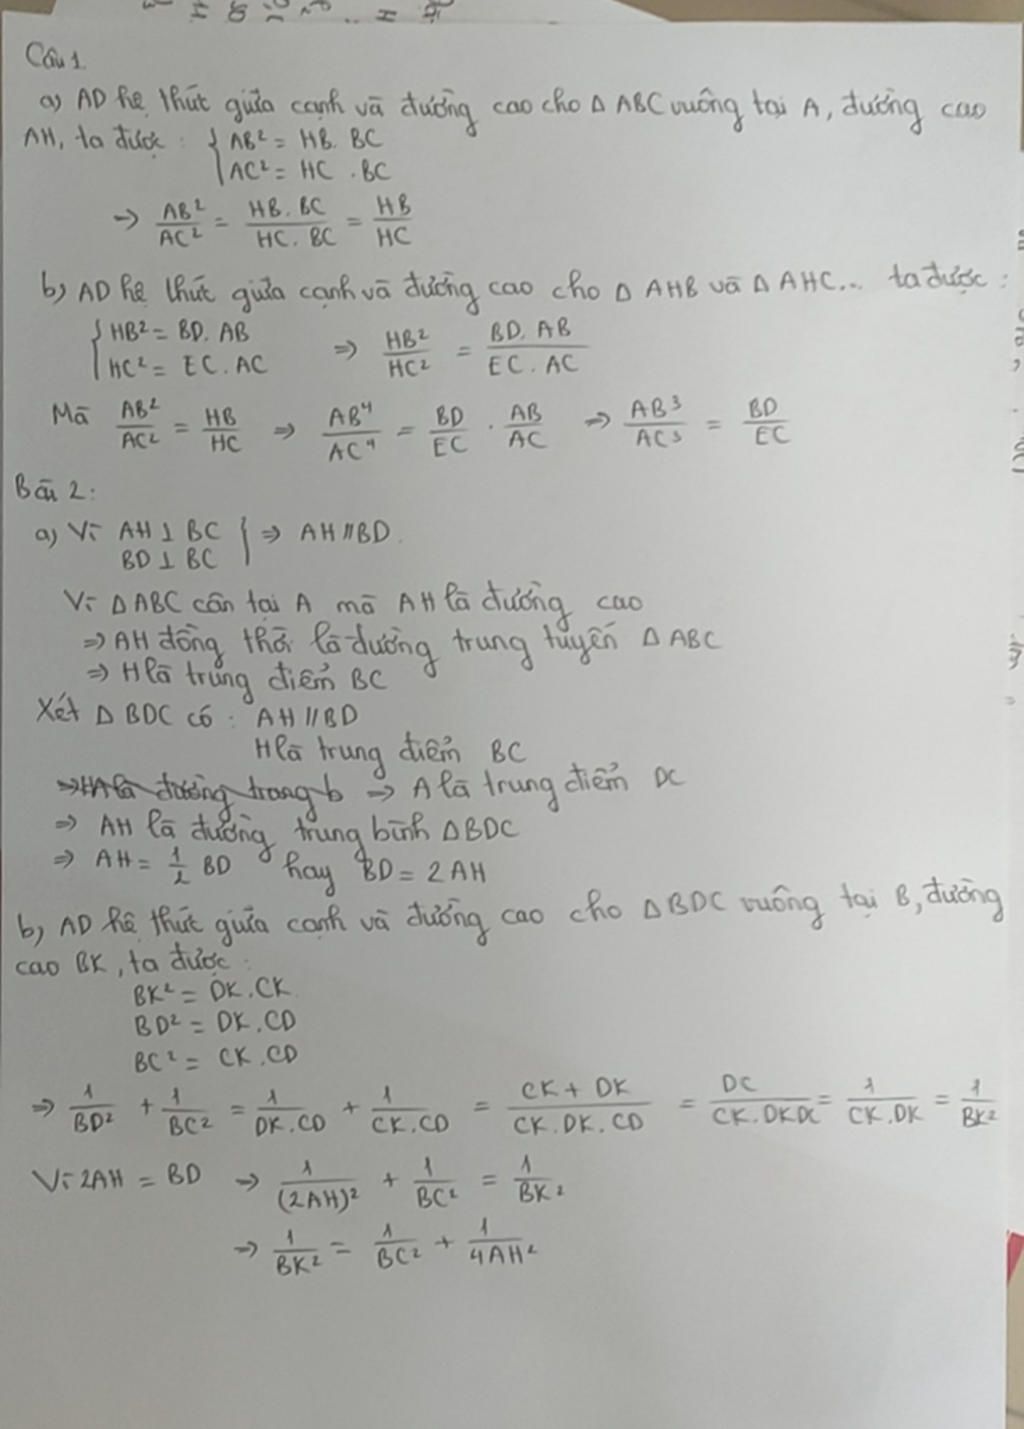 Câu 1
a) AD hệ thức giữa cạnh và đường cao cho Δ ABC vuông tại A, đường cao
AH, ta được : { AB² = HB. BC
AC² = HC . BC
→ AB²/AC² = HB. BC/HC. BC = HB/HC
b) AD hệ thức giữa cạnh và đường cao cho Δ AHB và Δ AHC... ta được :
{ HB² = BD. AB
HC² = EC. AC ⇒ HB²/HC² = BD. AB/EC. AC
Mà AB²/AC² = HB/HC ⇒ AB⁴/AC⁴ = BD/EC . AB/AC ⇒ AB³/AC³ = BD/EC
Bài 2:
a) Vì AH ⊥ BC } ⇒ AH // BD.
BD ⊥ BC
Vì Δ ABC cân tại A mà AH là đường cao
⇒ AH đồng thời là đường trung tuyến Δ ABC
⇒ H là trung điểm BC
Xét Δ BDC có : AH // BD
H là trung điểm BC
⇒ HA là đường trung b → A là trung điểm DC
⇒ AH là đường trung bình ΔBDC
⇒ AH = 1/2 BD hay BD = 2AH
b, AD hệ thức giữa cạnh và đường cao cho ΔBDC vuông tại B, đường
cao BK, ta được :
BK² = DK. CK
BD² = DK. CD
BC² = CK. CD
⇒ 1/BD² + 1/BC² = 1/DK. CD + 1/CK. CD = CK + DK/CK. DK. CD = DC/CK. DK DC = 1/CK. DK = 1/BK²
Vì 2AH = BD → 1/(2AH)² + 1/BC² = 1/BK²
→ 1/BK² = 1/BC² + 1/4AH²